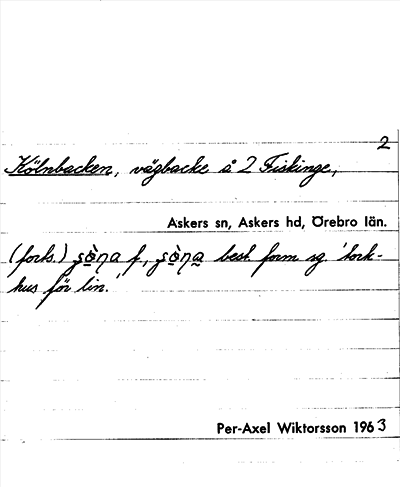 2
Kölnbacken, vägbacke å 2 Fiskinge,
Askers sn, Askers hd, Örebro län.
(forts.) f, best. form sg. 'tork-
hus för lin.'
Per-Axel Wiktorsson 1963